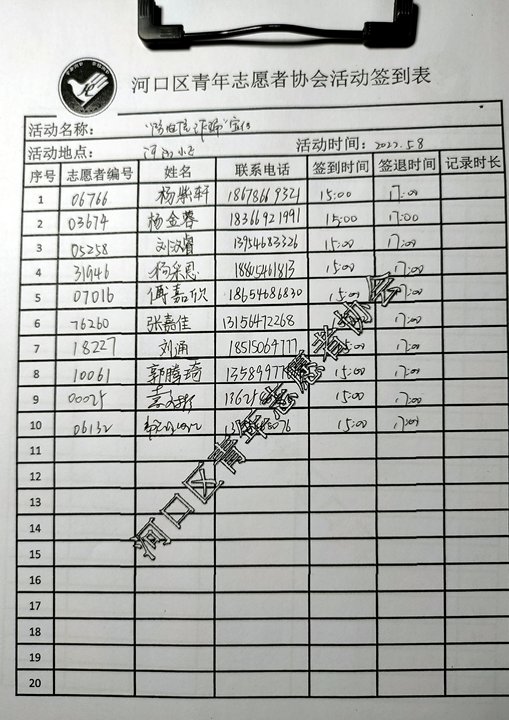 河口区青年志愿者协会活动签到表
活动名称：
活动地点： 活动时间：2022.5.8
序号 志愿者编号 姓名 联系电话 签到时间 签退时间 记录时长
1 06766 杨紫轩 18678669321 15:00 17:00
2 03674 杨金蓉 18366921991 15:00 17:00
3 05258 刘汶睿 13954683326 15:00 17:00
4 31946 18805461813 15:00 17:00
5 07016 傅嘉欣 18654686830 15:00 17:00
6 76260 张嘉佳 13156472268 17:00
7 18227 刘涌 18515064777 15:00 17:00
8 10061 郭腾琦 15:00 17:00
9 00025 15:00 17:00
10 06132 15:00 17:00
11
12
13
14
15
16
17
18
19
20
河口区青年志愿者协会